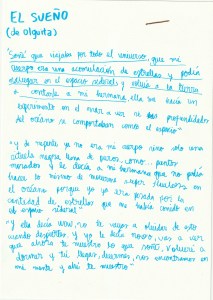 EL SUEÑO
(de Olguita)
"Soñé que viajaba por todo el universo, que mi
cuerpo era una acumulación de estrellas y podía
navegar en el espacio sideral y volvía a la tierra
a contarle a mi hermana, ella me hacía un
experimento en el mar a ver si las propiedades
del océano se comportaban como el espacio"
"y de repente ya no era mi cuerpo sino solo una
cosita negra llena de pares, como... puntos
morados y le decía a mi hermana que no podía
hacer lo mismo de nadar super fluidless en
el océano porque yo ya era pesada por la
cantidad de estrellas que me había comido en
el espacio sideral"
"y ella decía uirsi, no te vayas a olvidar de esto
cuando despiertes y yo le decía nooo, vas a ver
que ahora te muestro lo que soñé, volveré a
dormir y tú llegas, duermes, nos encontramos en
mi mente y ahí te muestro"